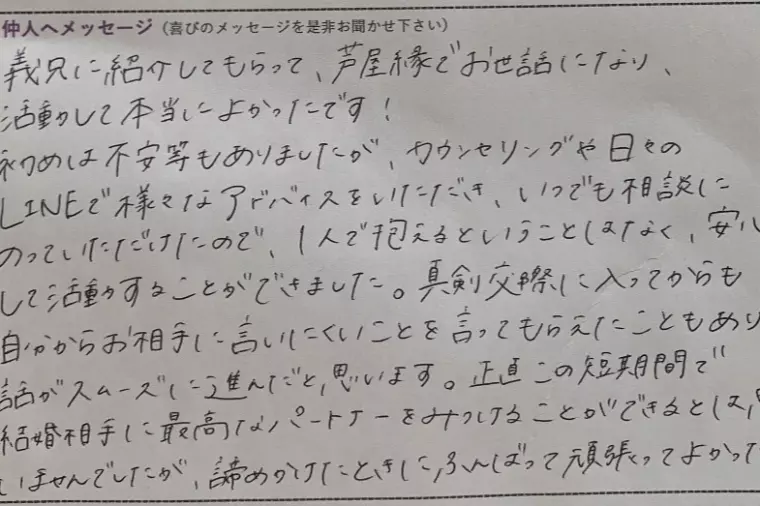 仲人へメッセージ（喜びのメッセージを是非お聞かせ下さい）
義兄に紹介してもらって、芦屋縁でお世話になり、
活動して本当によかったです！
初めは不安等もありましたが、カウンセリングや日々の
LINEで様々なアドバイスをいただき、いつでも相談に
のっていただけたので、1人で抱えるということはなく、安心
して活動することができました。真剣交際に入ってからも
自分からお相手に言いにくいことを言ってもらえたこともあり
話がスムーズに進んだと思います。正直この短期間で
結婚相手に最高なパートナーをみつけることができるとは、
いませんでしたが、諦めかけたときに、ふんばって頑張ってよかった